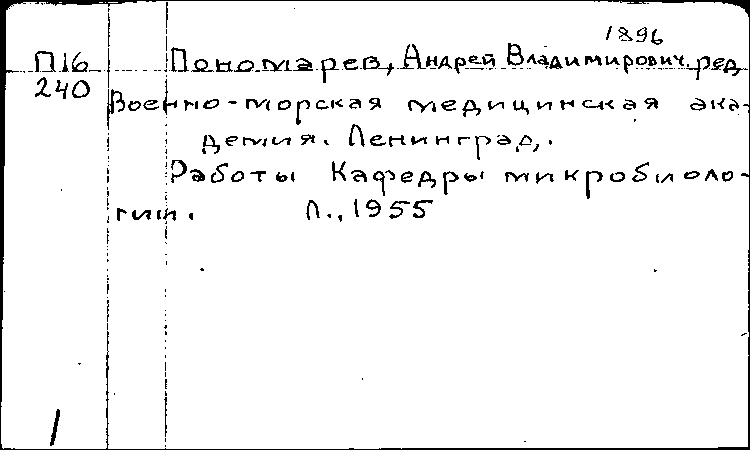 1896
П16 Пономарев, Андрей Владимирович. ред.
240 Военно-морская медицинская ака-
демия. Ленинград,.
Работы Кафедры микробиоло-
гии. Л., 1955
1